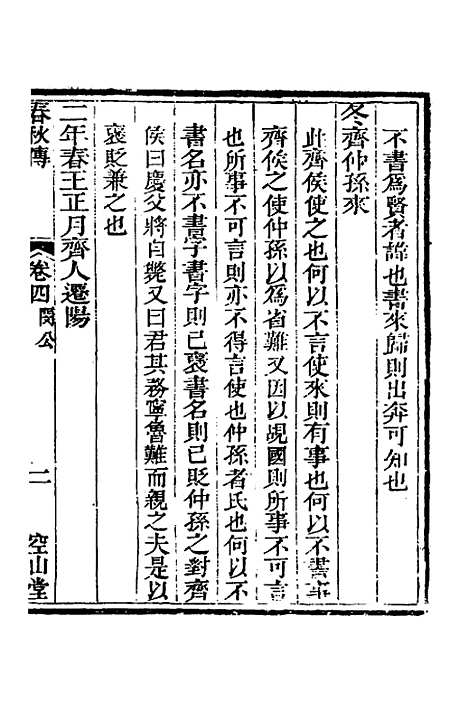 不書爲賢者諱也書來歸則出奔可知也
冬齊仲孫來
此齊侯使之也何以不言使來則有事也何以不書事
齊侯之使仲孫以爲省難又因以覘國則所事不可言
也所事不可言則亦不得言使也仲孫者氏也何以不
書名亦不書字書字則已褒書名則已貶仲孫之對齊
侯曰慶父將自斃又曰君其務寧魯難而親之夫是以
褒貶兼之也
二年春王正月齊人遷陽
春秋傳 卷四 閔公 二 空山堂